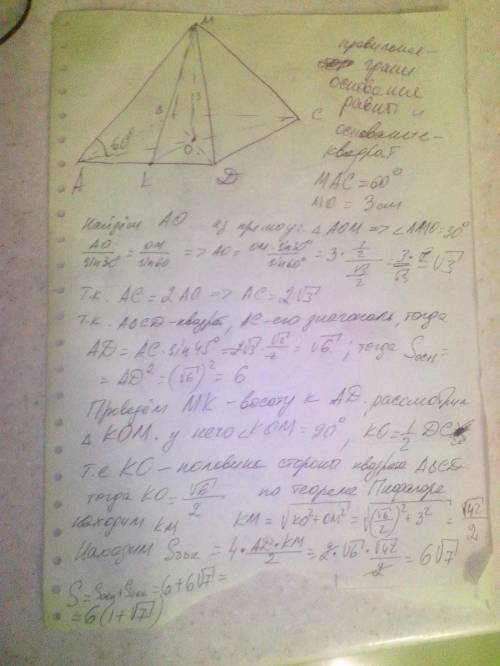 М
60°
3
O
A
K
D
C
правильная -
грани
основания
равны и
основание -
квадрат
MAC = 60°
MO = 3 см
Найдём AO из прямоуг. △ AOM => ∠AMO = 30°
AO/sin30° = OM/sin60° => AO = OM · sin30°/sin60° = 3 · (1/2)/(√3/2) = 3/√3 = √3
Т.к. AC = 2AO => AC = 2√3
Т.к. ABCD - квадрат, AC - его диагональ, тогда
AD = AC · sin45° = 2√3 · √2/2 = √6; тогда Sосн =
= AD² = (√6)² = 6
Проведём MK - высоту к AD. рассмотрим
△ KOM. у него ∠KOM = 90°, KO = 1/2 DC
т.е KO - половина стороны квадрата ABCD
тогда KO = √6/2 по теореме Пифагора
находим KM KM = √(KO² + OM²) = √((√6/2)² + 3²) = √42/2
Находим Sбок = 4 · AD · KM/2 = 2 · √6 · √42/2 = 6√7
S = Sосн + Sбок = 6 + 6√7 =
= 6(1 + √7)